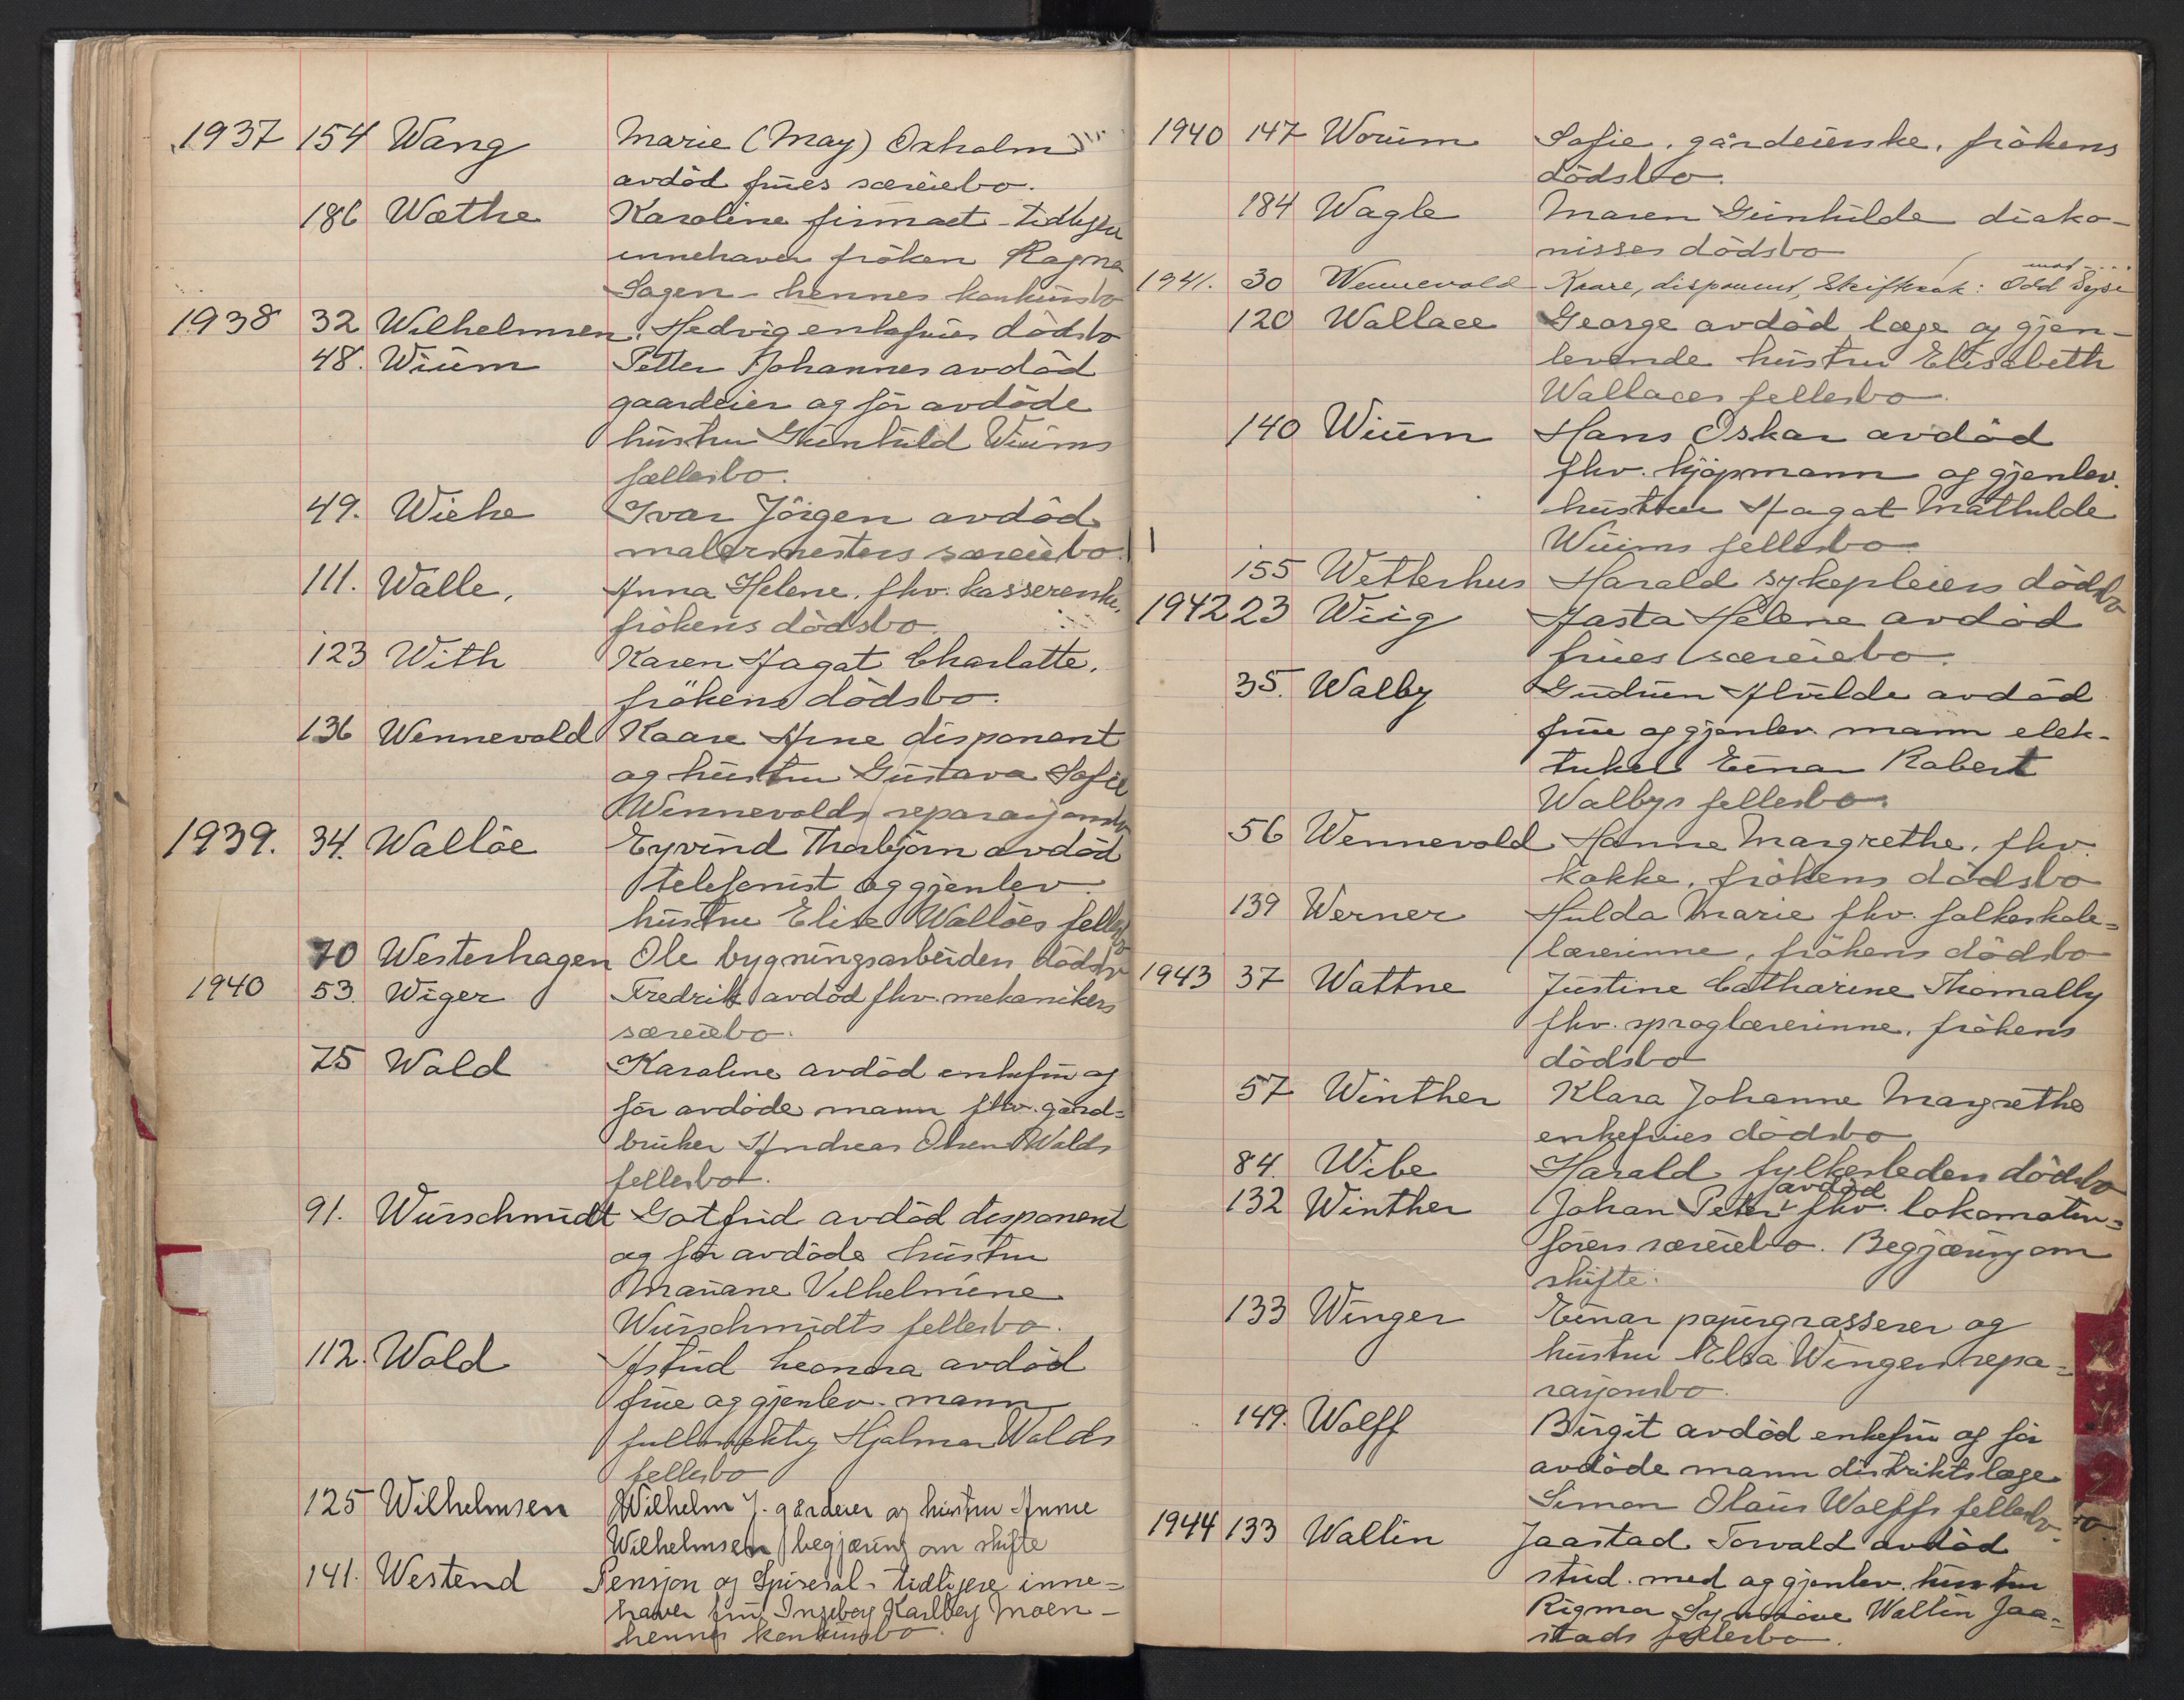 1937 154 Wang Marie (May) Oxholm
avdöd frues særeiebo.
186 Wæthe Karoline firmaet - tidligere
innehaver fröken Ragna
Sagen - hennes konkursbo
1938 32 Wilhelmsen, Hedvig enkefrues dödsbo
48. Wium Petter Johannes avdöd
gaardeier og för avdöde
hustru Gunhild Wiums
fellesbo.
49. Wiehe Ivar Jörgen avdöd
malermesters særeiebo.
111. Walle, Anna Helene, fhv. kassererske,
frökens dödsbo
123 With Karen Agat Charlotte,
frökens dödsbo.
136 Wennevold Kaare Arne disponent
og hustru Gustava Sofie
Wennevolds reparasjonsbo
1939. 34. Wallöe Eyvind Thorbjörn avdöd
telefonist og gjenlev.
hustru Elise Wallöes fellesbo
70 Westerhagen Ole bygningsarbeiders dödsbo
1940 53. Wiger Fredrik avdöd fhv. mekanikers
særeiebo.
75 Wold Karoline avdöd enkefru og
för avdöde mann fhv. gård=
bruker Andreas Olsen Wolds
fellesbo.
91. Würschmidt Gotfrid avdöd disponent
og för avdöde hustru
Mariane Vilhelmine
Würschmidts fellesbo.
112. Wold Astrid Leonora avdöd
frue og gjenlev. mann
fullmektig Hjalmar Wolds
fellesbo
125 Wilhelmsen Wilhelm J. gårdeier og hustru Anne
Wilhelmsen begjæring om skifte
141. Westend Pensjon og Spisesal - tidligere inne=
haver fru Ingeborg Karlberg Moen -
hennes konkursbo.
1940 147 Worum Sofie, gårdeierske, frökens
dödsbo.
184 Wagle Maren Gunhilde diako-
nisses dödsbo
1941. 30 Wennevold Kaare, disponent, Skiftesak: mot Odd Syse
120 Wallace George avdöd læge og gjen-
levende hustru Elisabeth
Wallaces fellesbo.
140 Wium Hans Oskar avdöd
fhv. kjöpmann og gjenlev.
hustru Agat Mathilde
Wiums fellesbo
155 Wetterhus Harald sykepleiers dödsbo
1942 23 Wiig Asta Helene avdöd
frues særeiebo.
35. Walby Gudrun Alvilde avdöd
frue og gjenlev. mann elek-
triker Einar Robert
Walbys fellesbo.
56 Wennevold Hanne Margrethe, fhv.
kokke, frökens dödsbo
139 Werner Hulda Marie fhv. folkeskole=
lærerinne, frökens dödsbo
1943 37 Wattne Justine Catharine Thomally
fhv. sproglærerinne, frökens
dödsbo
57 Winther Klara Johanne Margrethe
enkefrues dödsbo
84. Wibe Harald fylkesleders dödsbo
132 Winther Johan Peter avdöd fhv. lokomotiv=
förers særeiebo. Begjæring om
skifte.
133 Winger Einar papirgrasserer og
hustru Elsa Wingers repa=
rasjonsbo.
149. Wolff Birgit avdöd enkefru og för
avdöde mann distriktslæge
Simon Olaus Wolffs fellesbo.
1944 133 Wallin Jaastad Torvald avdöd
stud. med og gjenlev. hustru
Rigmor Synnöve Wallin Jaa=
stads fellesbo.
X
Y
Z